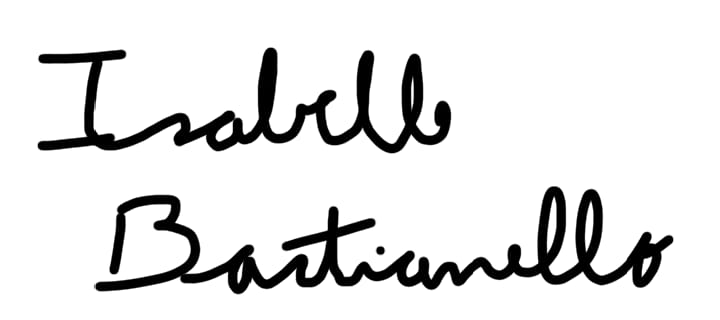 Isabelle
Bastianello